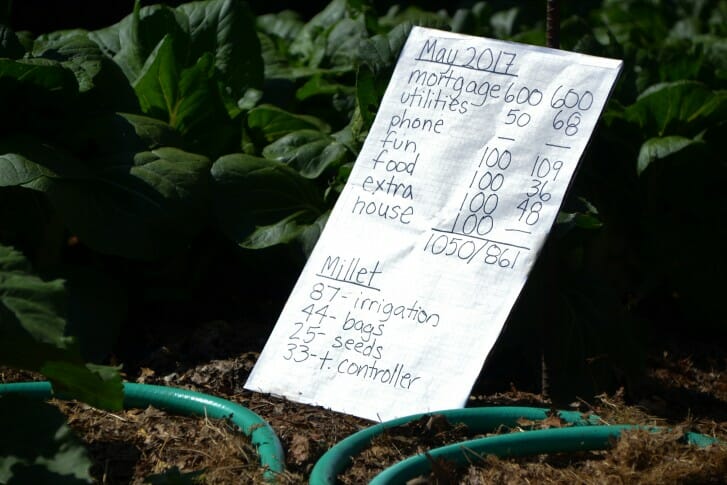 May 2017
mortgage 600 600
utilities 50 68
phone — —
fun 100 109
food 100 36
extra 100 48
house 100 —
1050/861
Millet
87- irrigation
44- bags
25- seeds
33- t. controller